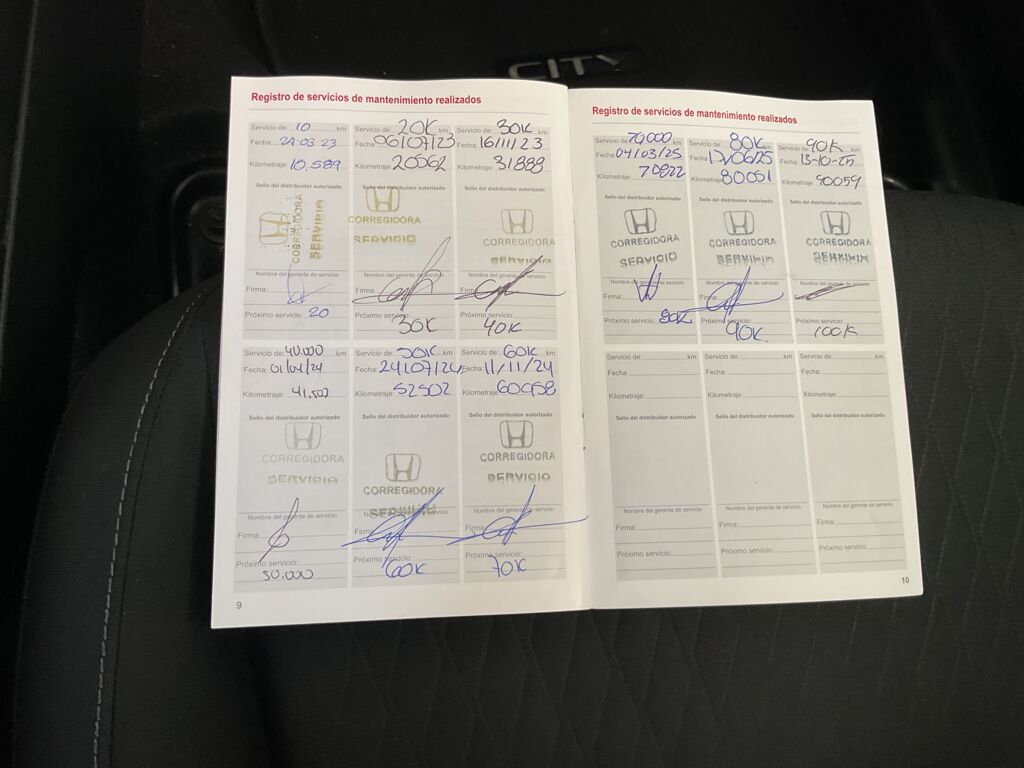 CITY
Registro de servicios de mantenimiento realizados
Servicio de: 10 km
Fecha: 24-03-23
Kilometraje: 10.589
Sello del distribuidor autorizado
CORREGIDORA
SERVICIO
Nombre del gerente de servicio
Firma:
Próximo servicio: 20
Servicio de: 20K km
Fecha: 06/07/23
Kilometraje: 20562
Sello del distribuidor autorizado
CORREGIDORA
SERVICIO
Nombre del gerente de servicio
Firma:
Próximo servicio:
30K
Servicio de: 30K km
Fecha: 16/11/23
Kilometraje: 31888
Sello del distribuidor autorizado
CORREGIDORA
SERVICIO
Nombre del gerente de servicio
Firma:
Próximo servicio:
40K
Servicio de: 40.000 km
Fecha: 01/04/24
Kilometraje: 41.500
Sello del distribuidor autorizado
CORREGIDORA
SERVICIO
Nombre del gerente de servicio
Firma:
Próximo servicio:
50.000
Servicio de: 50K km
Fecha: 24/07/24
Kilometraje: 52502
Sello del distribuidor autorizado
CORREGIDORA
SERVICIO
Firma:
Próximo servicio:
60K
Servicio de: 60K km
Fecha: 11/11/24
Kilometraje: 60958
Sello del distribuidor autorizado
CORREGIDORA
SERVICIO
Nombre del gerente de servicio
Firma:
Próximo servicio:
70K
9
Registro de servicios de mantenimiento realizados
Servicio de: 70,000 km
Fecha: 04/03/25
Kilometraje: 70822
Sello del distribuidor autorizado
CORREGIDORA
SERVICIO
Nombre del gerente de servicio
Firma:
Próximo servicio: 80K
Servicio de: 80K km
Fecha: 17/06/25
Kilometraje: 80051
Sello del distribuidor autorizado
CORREGIDORA
SERVICIO
Nombre del gerente de servicio
Firma:
Próximo servicio:
90K.
Servicio de: 90K km
Fecha: 13-10-25
Kilometraje: 90059
Sello del distribuidor autorizado
CORREGIDORA
SERVICIO
Nombre del gerente de servicio
Firma:
Próximo servicio:
100K
Servicio de: km
Fecha:
Kilometraje:
Sello del distribuidor autorizado
Nombre del gerente de servicio
Firma:
Próximo servicio:
Servicio de: km
Fecha:
Kilometraje:
Sello del distribuidor autorizado
Nombre del gerente de servicio
Firma:
Próximo servicio:
Servicio de: km
Fecha:
Kilometraje:
Sello del distribuidor autorizado
Nombre del gerente de servicio
Firma:
Próximo servicio:
10